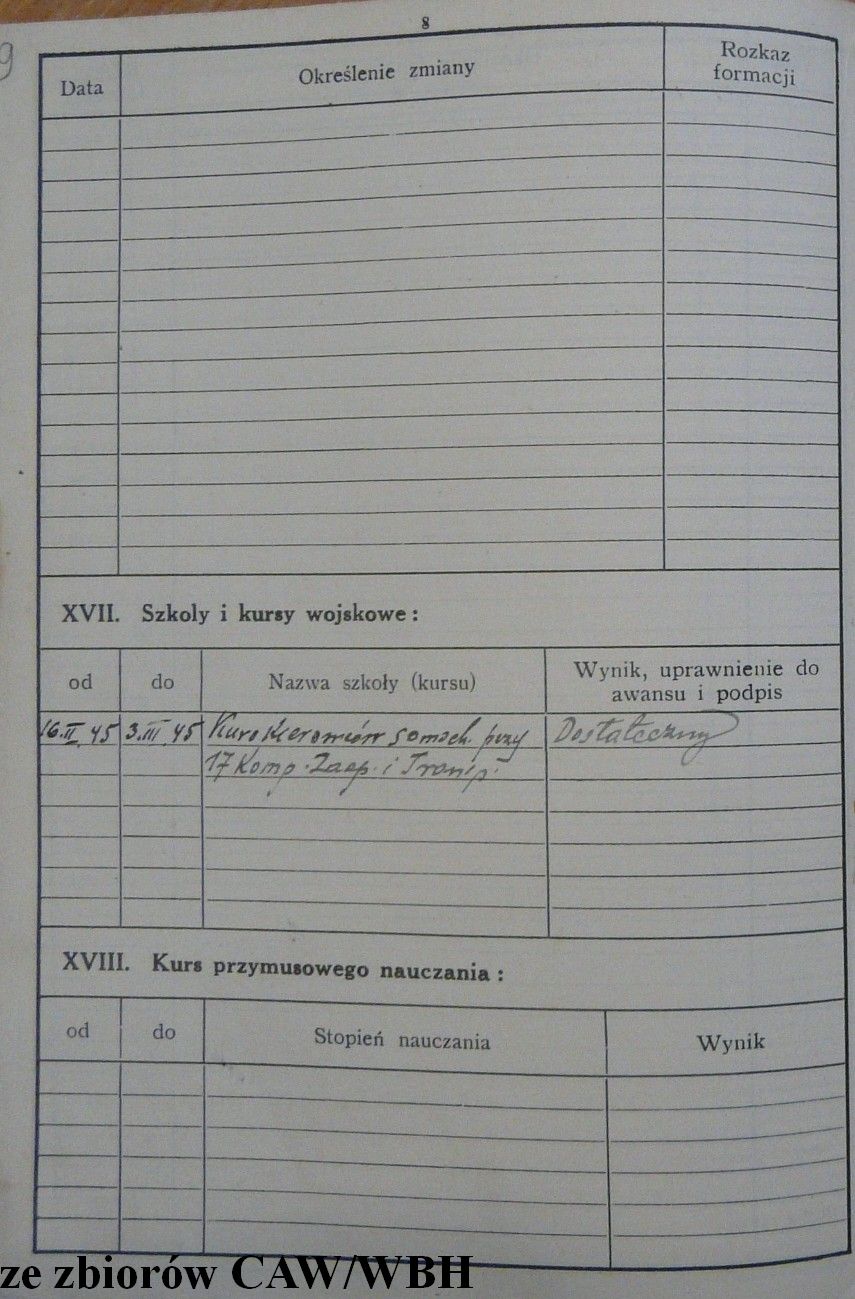 8
9
Data Określenie zmiany Rozkaz formacji
XVII. Szkoły i kursy wojskowe :
od do Nazwa szkoły (kursu) Wynik, uprawnienie do awansu i podpis
16.II.45 3.III.45 Kurs Kierowców samoch. przy Dostateczny
17 Komp. Zaop. i Transp.
XVIII. Kurs przymusowego nauczania :
od do Stopień nauczania Wynik
ze zbiorów CAW/WBH